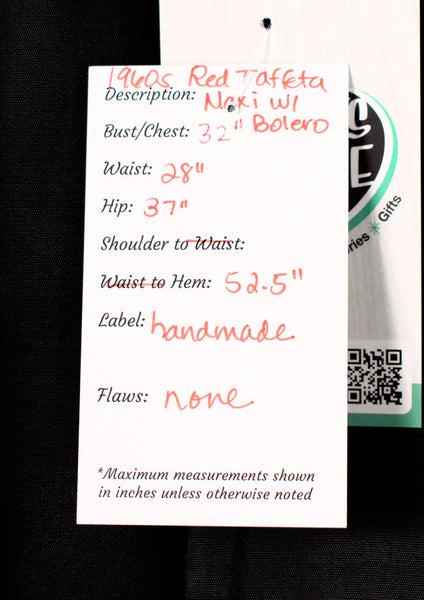 1960s Red Taffeta
Description: Maxi w/
Bust/Chest: 32" Bolero
Waist: 28"
Hip: 37"
Shoulder to Waist:
Waist to Hem: 52.5"
Label: handmade
Flaws: none
*Maximum measurements shown
in inches unless otherwise noted
S
E
ries * Gifts